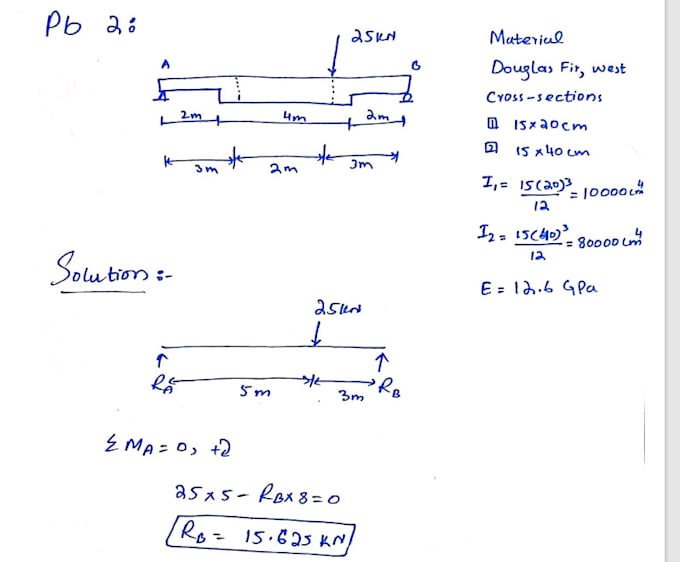 Pb 2:
25KN
A
B
2m
4m
2m
3m
2m
3m
Material
Douglas Fir, west
Cross-sections
1 15×20cm
2 15×40cm
I₁ = 15(20)³/12 = 10000cm⁴
I₂ = 15(40)³/12 = 80000cm⁴
E = 12.6 GPa
Solution :-
25KN
RA
5m
3m
RB
Σ MA = 0, +2
25×5 - RB×8 = 0
RB = 15.625 KN